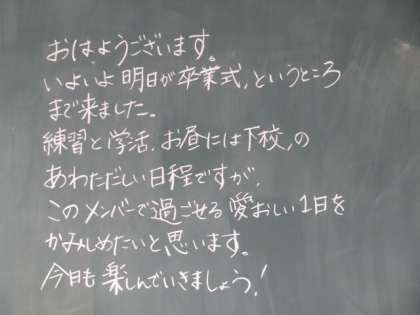 おはようございます。
いよいよ明日が卒業式,というところ
まで来ました。
練習と学活,お昼には下校,の
あわただしい日程ですが,
このメンバーで過ごせる愛おしい1日を
かみしめたいと思います。
今日も楽しんでいきましょう!